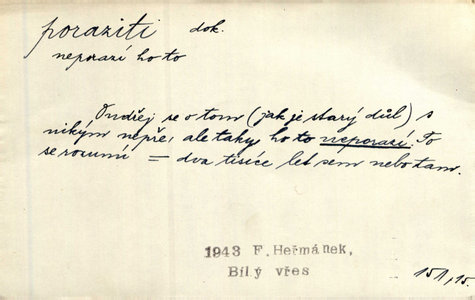 poraziti dok.
neporazí ho to
Ondřej se o tom (jak je starý důl) s
nikým nepře, ale taky ho to neporazí. To
se rozumí = dva tisíce let sem nebo tam.
1943 F. Heřmánek,
Bílý vřes